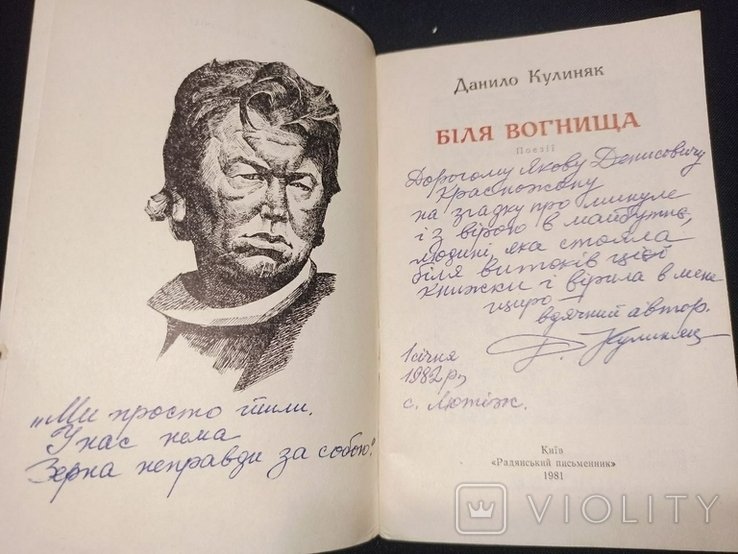 „Ми просто йшли.
У нас нема
Зерна неправди за собою."
Данило Кулиняк
БІЛЯ ВОГНИЩА
Поезії
Дорогому Якову Денисовичу
Красножону
на згадку про минуле
і з вірою в майбутнє,
людині, яка стояла
біля витоків цієї
книжки і вірила в мене
щиро –
вдячний автор.
Д. Кулиняк
1 січня
1982 р.,
с. Лютіж.
Київ
«Радянський письменник»
1981
VIOLITY